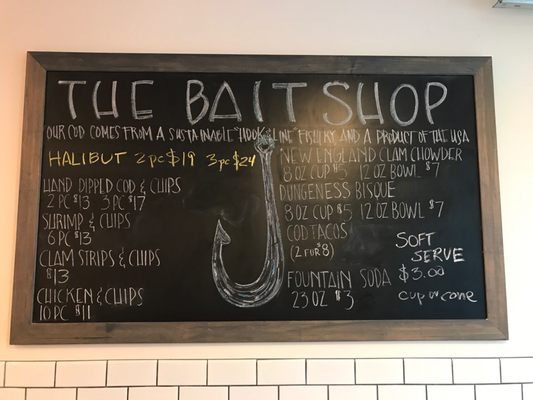 THE BAIT SHOP
OUR COD COMES FROM A SUSTAINABLE "HOOK & LINE" FISHERY AND A PRODUCT OF THE USA
HALIBUT 2 pc $19 3 pc $24
HAND DIPPED COD & CHIPS
2 PC $13 3 PC $17
SHRIMP & CHIPS
6 PC $13
CLAM STRIPS & CHIPS
$13
CHICKEN & CHIPS
10 PC $11
NEW ENGLAND CLAM CHOWDER
8 OZ CUP $5 12 OZ BOWL $7
DUNGENESS BISQUE
8 OZ CUP $5 12 OZ BOWL $7
COD TACOS
(2 FOR $8)
FOUNTAIN SODA
23 OZ $3
SOFT
SERVE
$3.00
cup or cone